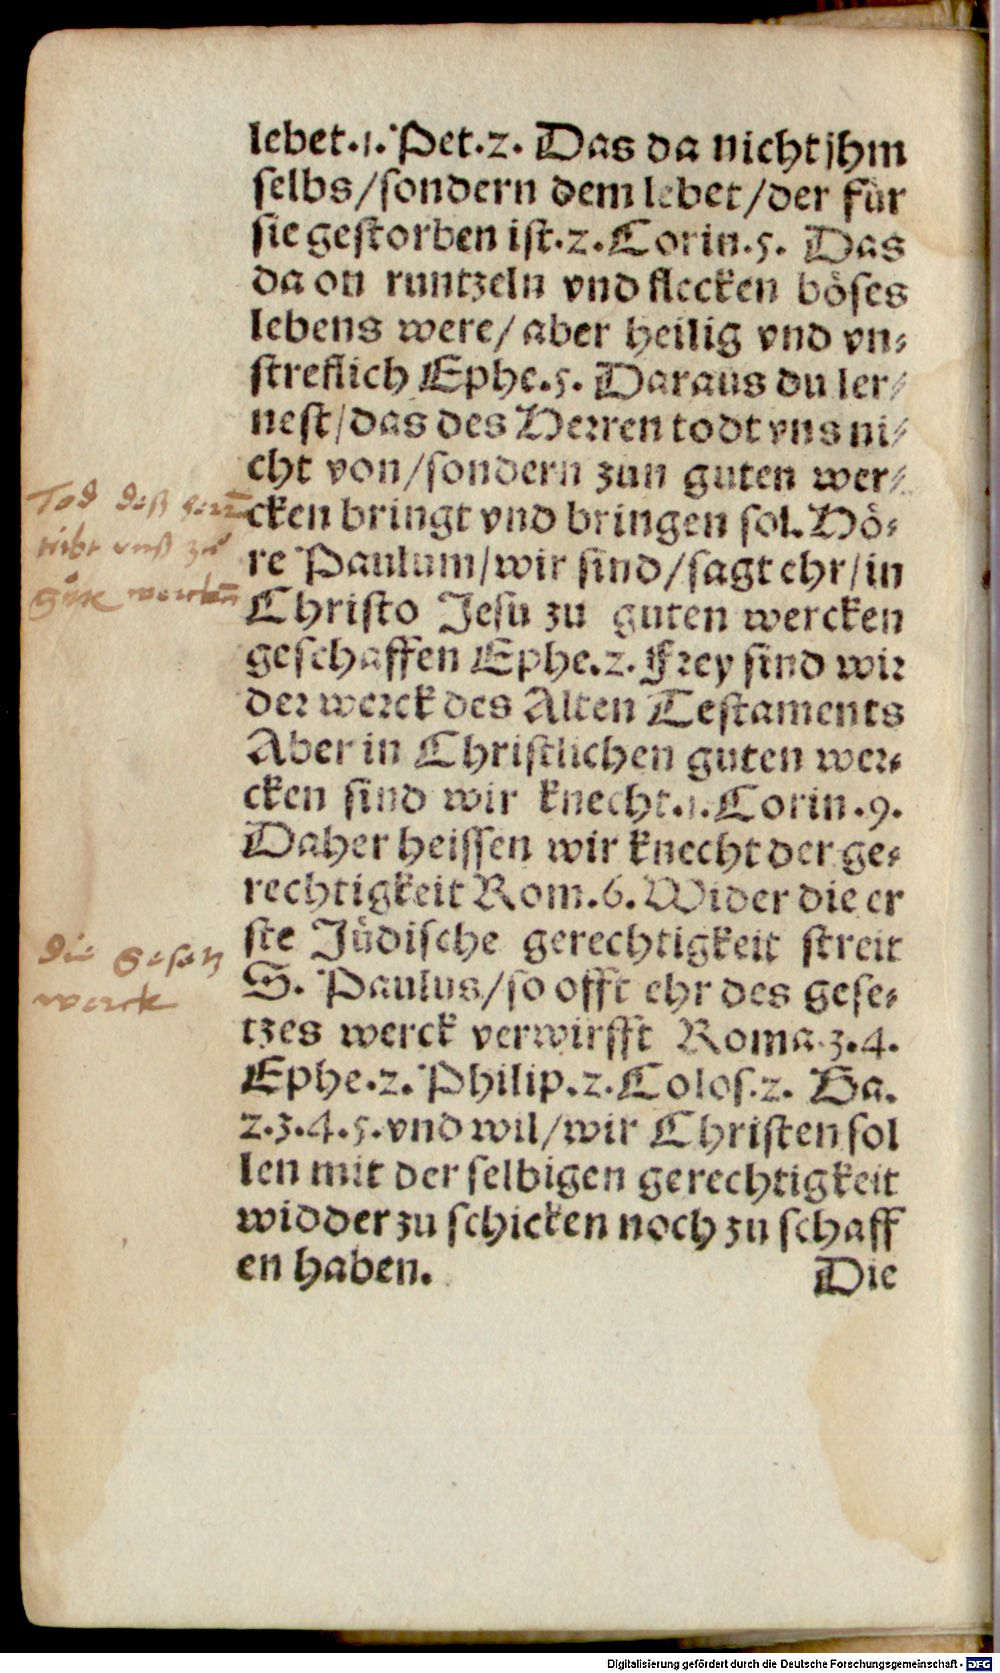 lebet.1. Pet.2. Das da nicht jhm
selbs/sondern dem lebet/der für
sie gestorben ist.2.Corin.5. Das
da on runtzeln vnd flecken böses
lebens were/ aber heilig vnd vn⸗
streflich Ephe.5. Daraus du ler⸗
nest/das des Herren todt vns ni⸗
cht von/sondern zun guten wer⸗
cken bringt vnd bringen sol. Hö⸗
re Paulum/wir sind/sagt ehr/in
Christo Jesu zu guten wercken
geschaffen Ephe.2. Frey sind wir
der werck des Alten Testaments
Aber in Christlichen guten wer⸗
cken sind wir knecht.1.Corin.9.
Daher heissen wir knecht der ge⸗
rechtigkeit Rom.6. Wider die er
ste Jüdische gerechtigkeit streit
S. Paulus/so offt ehr des gese⸗
tzes werck verwirfft Roma.3.4.
Ephe.2. Philip.2.Colos.2. Ga.
2.3.4.5.vnd wil/wir Christen sol
len mit der selbigen gerechtigkeit
widder zu schicken noch zu schaff
en haben.
Die
Tod deß herrn̄
tribt vnß zů
gůte werckn̄
die Gesatz
werck
Digitalisierung gefördert durch die Deutsche Forschungsgemeinschaft - DFG